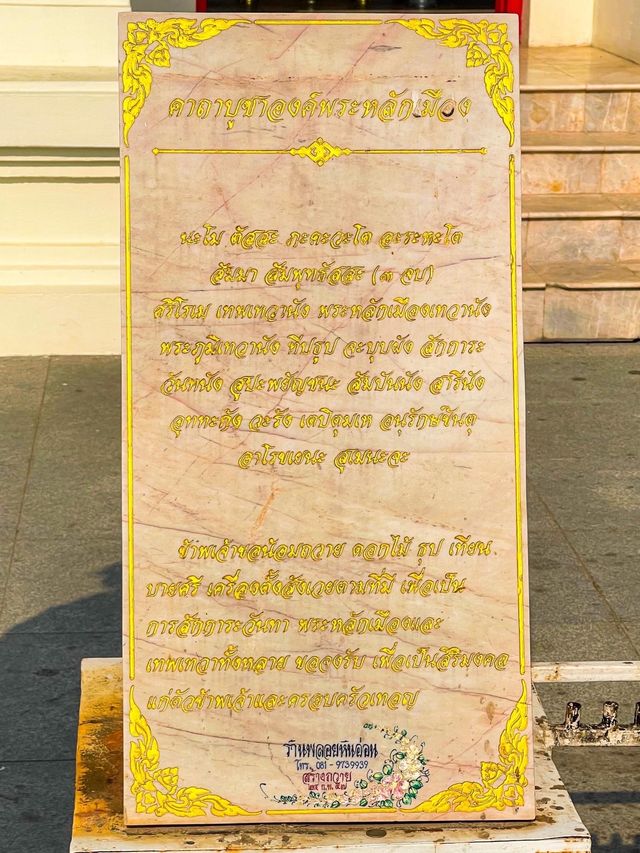 คาถาบูชาองค์พระหลักเมือง
นะโม ตัสสะ ภะคะวะโต อะระหะโต
สัมมา สัมพุทธัสสะ (๓ จบ)
ศรีโรเม เทพเทวานัง พระหลักเมืองเทวานัง
พระภูมิเทวานัง ทีปธูป จะบุบผัง สักการะ
วันทนัง สูปะพยัญชนะ สัมปันนัง สารีนัง
อุททะกัง วะรัง เตปิตุมเห อนุรักษ์ขันตุ
อาโรขเยนะ สุเมนะจะ
ข้าพเจ้าขอน้อมถวาย ดอกไม้ ธูป เทียน
บายศรี เครื่องตั้งสังเวยตามที่มี เพื่อเป็น
การสักการะวันทา พระหลักเมืองและ
เทพเทวาทั้งหลาย ขอจงรับ เพื่อเป็นสิริมงคล
แก่ตัวข้าพเจ้าและครอบครัวเทอญ
ร้านพลอยหินอ่อน
โทร. 081 - 9739939
สร้างถวาย
๒๙ ก.พ. ๕๗